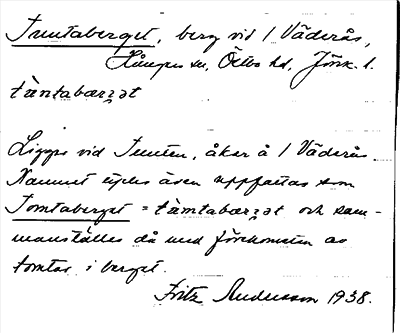 Tuntaberget, berg vid 1 Väderås,
Hångers sn, Östbo hd, Jönk. l.
tàntabærʒət
Ligger vid Tunten, åker å 1 Väderås.
Namnet tycks även uppfattas som
Tomtaberget = tàmtabærʒət och sam-
manställes då med förekomsten av
tomtar i berget.
Fritz Andersson 1938.